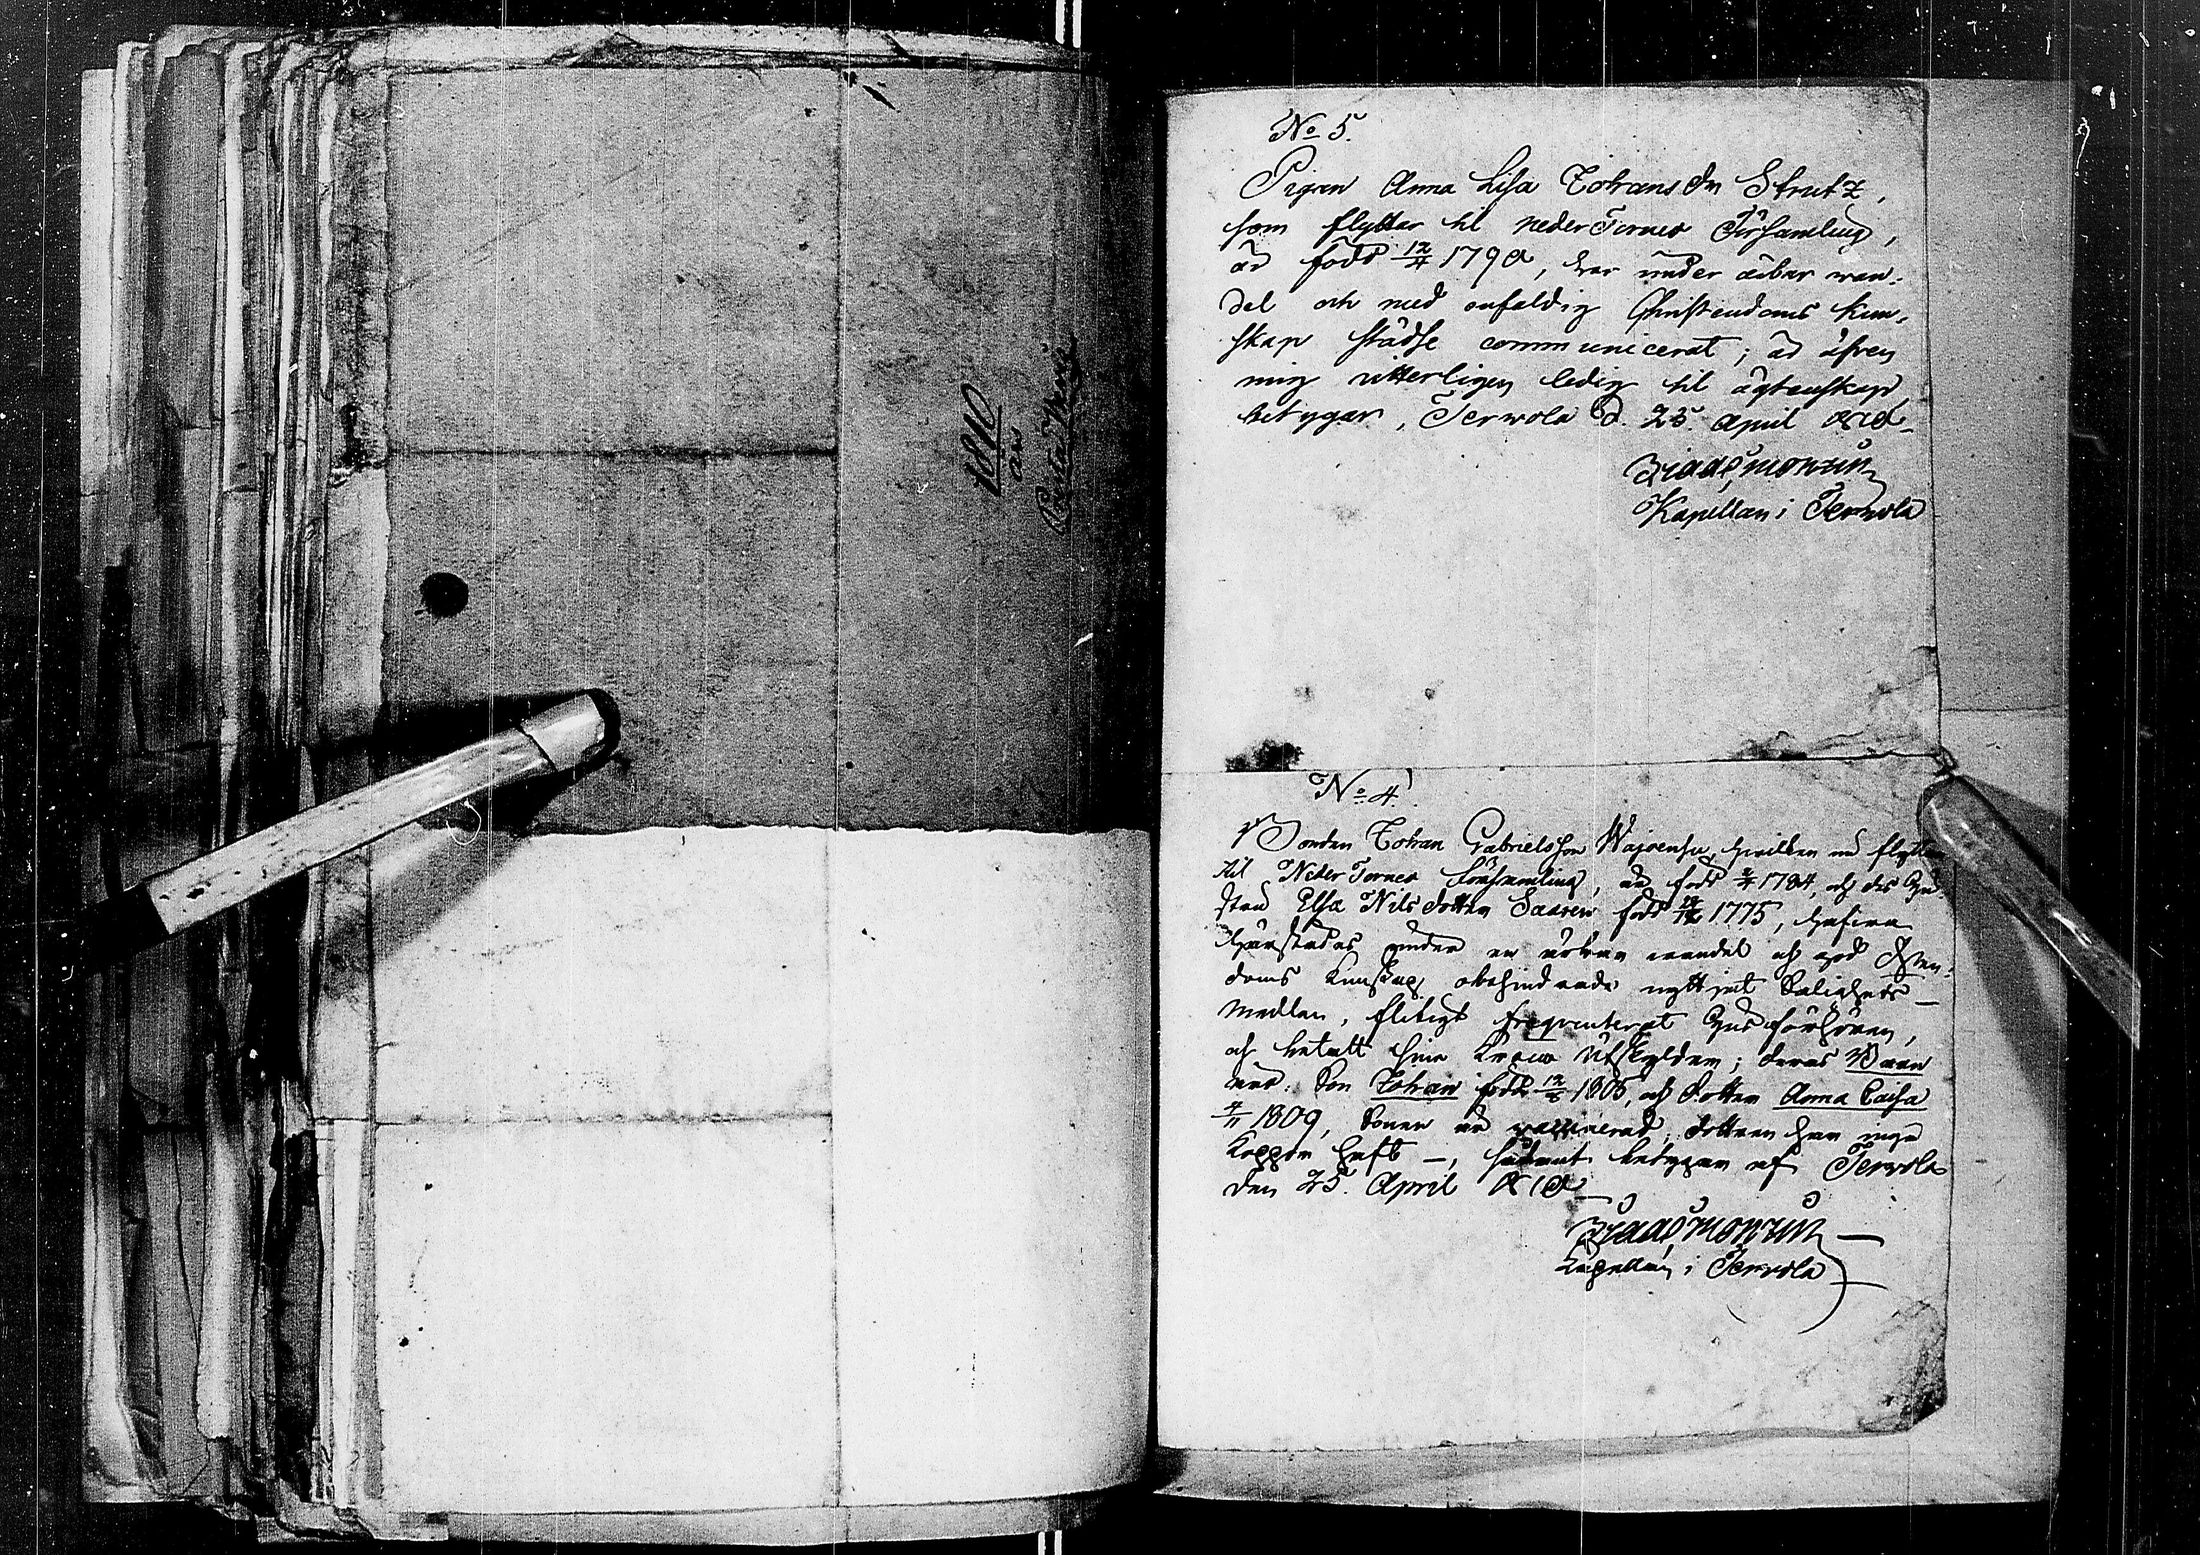 1810
års
No 5.
Pigan Anna Lisa Johans dr Strutz,
som flyttar til neder Torneo Församling,
är född 12/4 1790, har under ärbar wan-
del och med enfaldig Christendoms kun-
skap städse communicerat; är äfven
mig witterligen ledig til ägtenskap
betygar, Terwola d. 25 April 1810
Kapellan i Terwola
No 4.
Bonden Johan Gabrielsson hvilken nu flyttar
til Neder Torneo församling, är född 1784, och des Hu-
stru Elsa Nils dotter Saaren född 1775, hafva
härstädes under en ärbar wandel och god Christen-
doms kunskap obehindrade nyttjat Salighets-
medlen, flitigt frequenterat Husförhören,
och betalt sina Krono Utskylder; deras Barn
äro: Son Johan född 12/8 1805, och Dotter Anna Caisa
4/11 1809, Sonen är vaccinerad, dottren har inga
Koppor haft —, betygar af Terwola
den 25. April 1810
Kapellan i Terwola